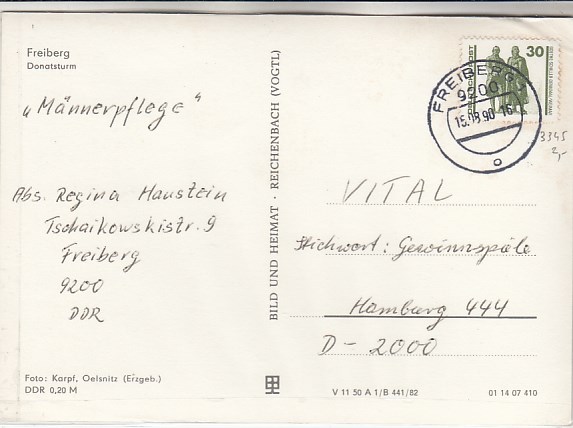 Freiberg
Donatsturm
„Männerpflege"
Abs. Regina Haustein
Tschaikowskistr. 9
Freiberg
9200
DDR
Foto: Karpf, Oelsnitz (Erzgeb.)
DDR 0,20 M
BILD UND HEIMAT · REICHENBACH (VOGTL)
30
FREIBERG
9200
15.08.90-16
3345
2,-
VITAL
Stichwort: Gewinnspiele
Hamburg 444
D-2000
V 11 50 A 1/B 441/82
01 14 07 410